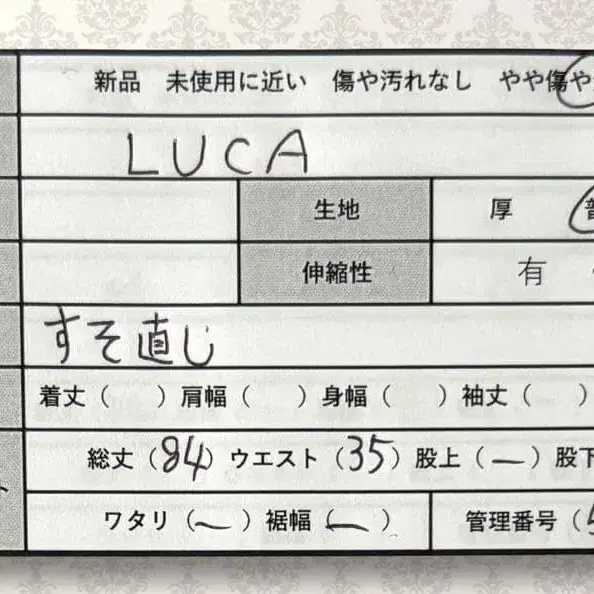 新品 未使用に近い 傷や汚れなし やや傷や
LUCA
生地 厚 普
伸縮性 有
すそ直し
着丈( ) 肩幅( ) 身幅( ) 袖丈( )
総丈(84) ウエスト(35) 股上(ー) 股下
ワタリ(ー) 裾幅(ー) 管理番号(